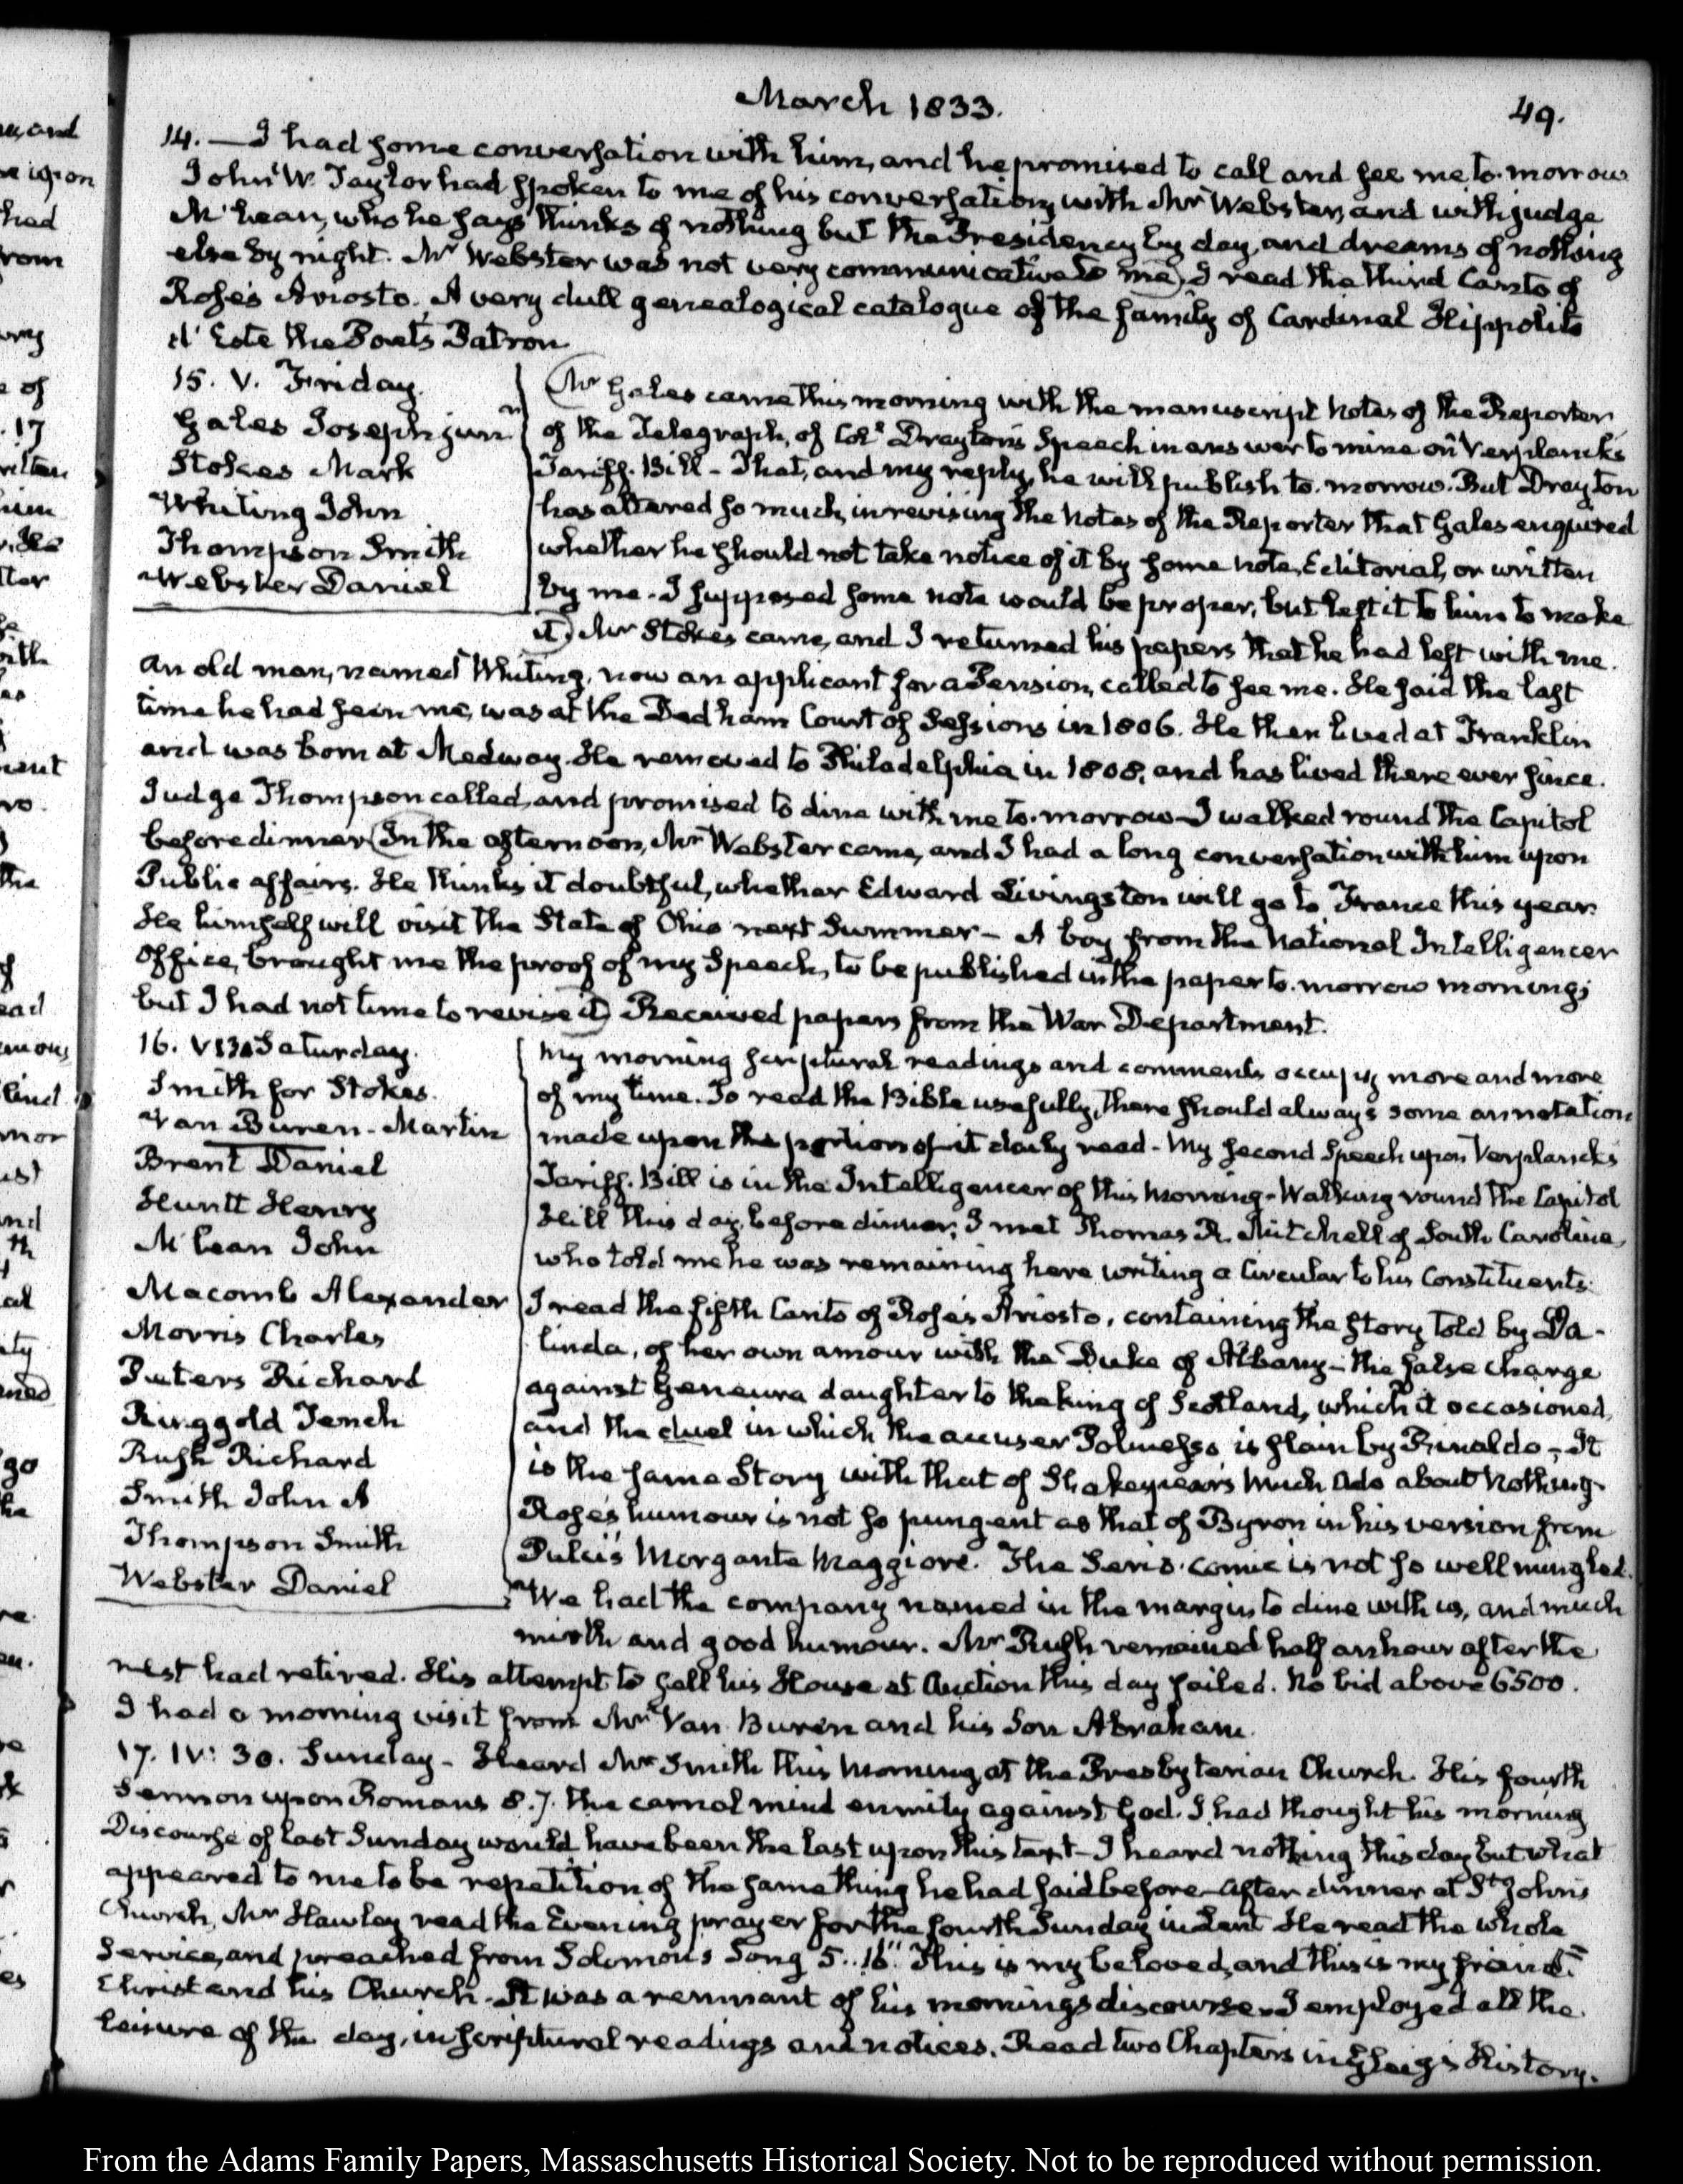 March 1833.
49.
14. — I had some conversation with him, and he promised to call and see me to-morrow
John W. Taylor had spoken to me of his conversations with Mr Webster, and with judge
McLean, who he says thinks of nothing but the Presidency by day, and dreams of nothing
else by night. Mr Webster was not very communicative to me) I read the third Canto of
Rose's Ariosto. A very dull genealogical catalogue of the family of Cardinal Hippolito
d'Este the Poet's Patron
15. V. Friday.
Gales Joseph junr
Stokes Mark
Whiting John
Thompson Smith
Webster Daniel
(Mr Gales came this morning with the manuscript Notes of the Reporter
of the Telegraph, of Coll Drayton's Speech in answer to mine on Verplanck's
Tariff-Bill - That, and my reply, he will publish to-morrow. But Drayton
has altered so much, in revising the Notes of the Reporter that Gales enquired
whether he should not take notice of it by some note, Editorial, or written
by me - I supposed some note would be proper, but left it to him to make
it) Mr Stokes came, and I returned his papers that he had left with me.
An old man, named Whiting, now an applicant for a Pension, called to see me. He said the last
time he had seen me, was at the Dedham Court of Sessions in 1806. He then lived at Franklin
and was born at Medway. He removed to Philadelphia in 1808, and has lived there ever since.
Judge Thompson called, and promised to dine with me to-morrow - I walked round the Capitol
before dinner (In the afternoon, Mr Webster came, and I had a long conversation with him upon
Public affairs. He thinks it doubtful, whether Edward Livingston will go to France this year.
He himself will visit the State of Ohio next Summer - A boy from the National Intelligencer
Office, brought me the proof of my Speech, to be published in the paper to-morrow morning;
but I had not time to revise it) Received papers from the War Department.
16. V Saturday.
Smith for Stokes.
Van Buren - Martin
Brent Daniel
Huntt Henry
McLean John
Macomb Alexander
Morris Charles
Peters Richard
Ringgold Tench
Rush Richard
Smith John A
Thompson Smith
Webster Daniel
My morning scriptural readings and comments occupy more and more
of my time. To read the Bible usefully, there should always some annotation
made upon the portion of it daily read - My second Speech upon Verplanck's
Tariff-Bill is in the Intelligencer of this Morning - Walking round the Capitol
Hill this day before dinner, I met Thomas R. Mitchell of South Carolina,
who told me he was remaining here writing a Circular to his Constituents.
I read the fifth Canto of Rose's Ariosto, containing the story told by Da-
linda, of her own amour with the Duke of Albany - the false charge
against Geneura daughter to the king of Scotland, which it occasioned,
and the duel in which the accuser Polinesso is slain by Rinaldo - It
is the same Story with that of Shakespear's Much Ado about Nothing.
Rose's humour is not so pungent as that of Byron in his version from
Pulci's Morgante Maggiore. The Serio-comic is not so well mingled.
We had the company named in the margin to dine with us, and much
mirth and good humour. Mr Rush remained half an hour after the
rest had retired. His attempt to sell his House at Auction this day failed. No bid above 6500.
I had a morning visit from Mr Van Buren and his Son Abraham.
17. IV: 30. Sunday - Heard Mr Smith this Morning, at the Presbyterian Church. His fourth
Sermon upon Romans 8.7. the carnal mind enmity against God. I had thought his morning
Discourse of last Sunday would have been the last upon this text - I heard nothing this day but what
appeared to me to be repetition of the same thing he had said before - After dinner at St John's
Church, Mr Hawley read the Evening prayer for the fourth Sunday in Lent. He read the whole
Service, and preached from Solomon's Song 5..16. "This is my beloved, and this is my friend."
Christ and his Church - It was a remnant of his morning's discourse - I employed all the
leisure of the day, in scriptural readings and notices. Read two Chapters in Gleig's History.
From the Adams Family Papers, Massachusetts Historical Society. Not to be reproduced without permission.